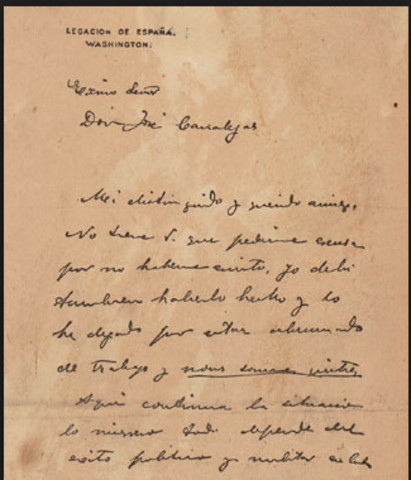 LEGACION DE ESPAÑA.
WASHINGTON.
Excmo Señor
Don José Canalejas
Mi distinguido y querido amigo,
No tiene V. que pedirme excusa
por no haberme escrito, yo debí
tambien haberlo hecho y lo
he dejado por estar abrumado
de trabajo y nous sommes quittes
Aquí continua la situacion
lo mismo. Todo depende del
exito politico y militar en Cuba